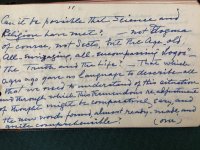 11
Can it be possible that Science and
Religion have met? — not Dogma
of course, not Sects, but the Age-old
All-engaging, all-encompassing Logos
The Truth and the Life? — That which
ages ago gave us language to describe all
that we need to understand of this situation
and through which this tremendous re-adjustment
of thought might be comparatively easy, and
the new words found almost ready-made, and
quite comprehensible!
(over)